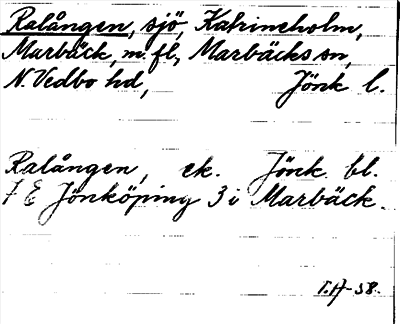 Ralången, sjö, Katrineholm,
Marbäck, m. fl., Marbäcks sn,
N. Vedbo hd, Jönk l.
Ralången, ek. Jönk bl.
7 E Jönköping 3 i Marbäck.